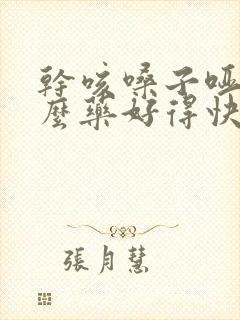 幹咳嗓子啞
麼藥好得快
張月慧